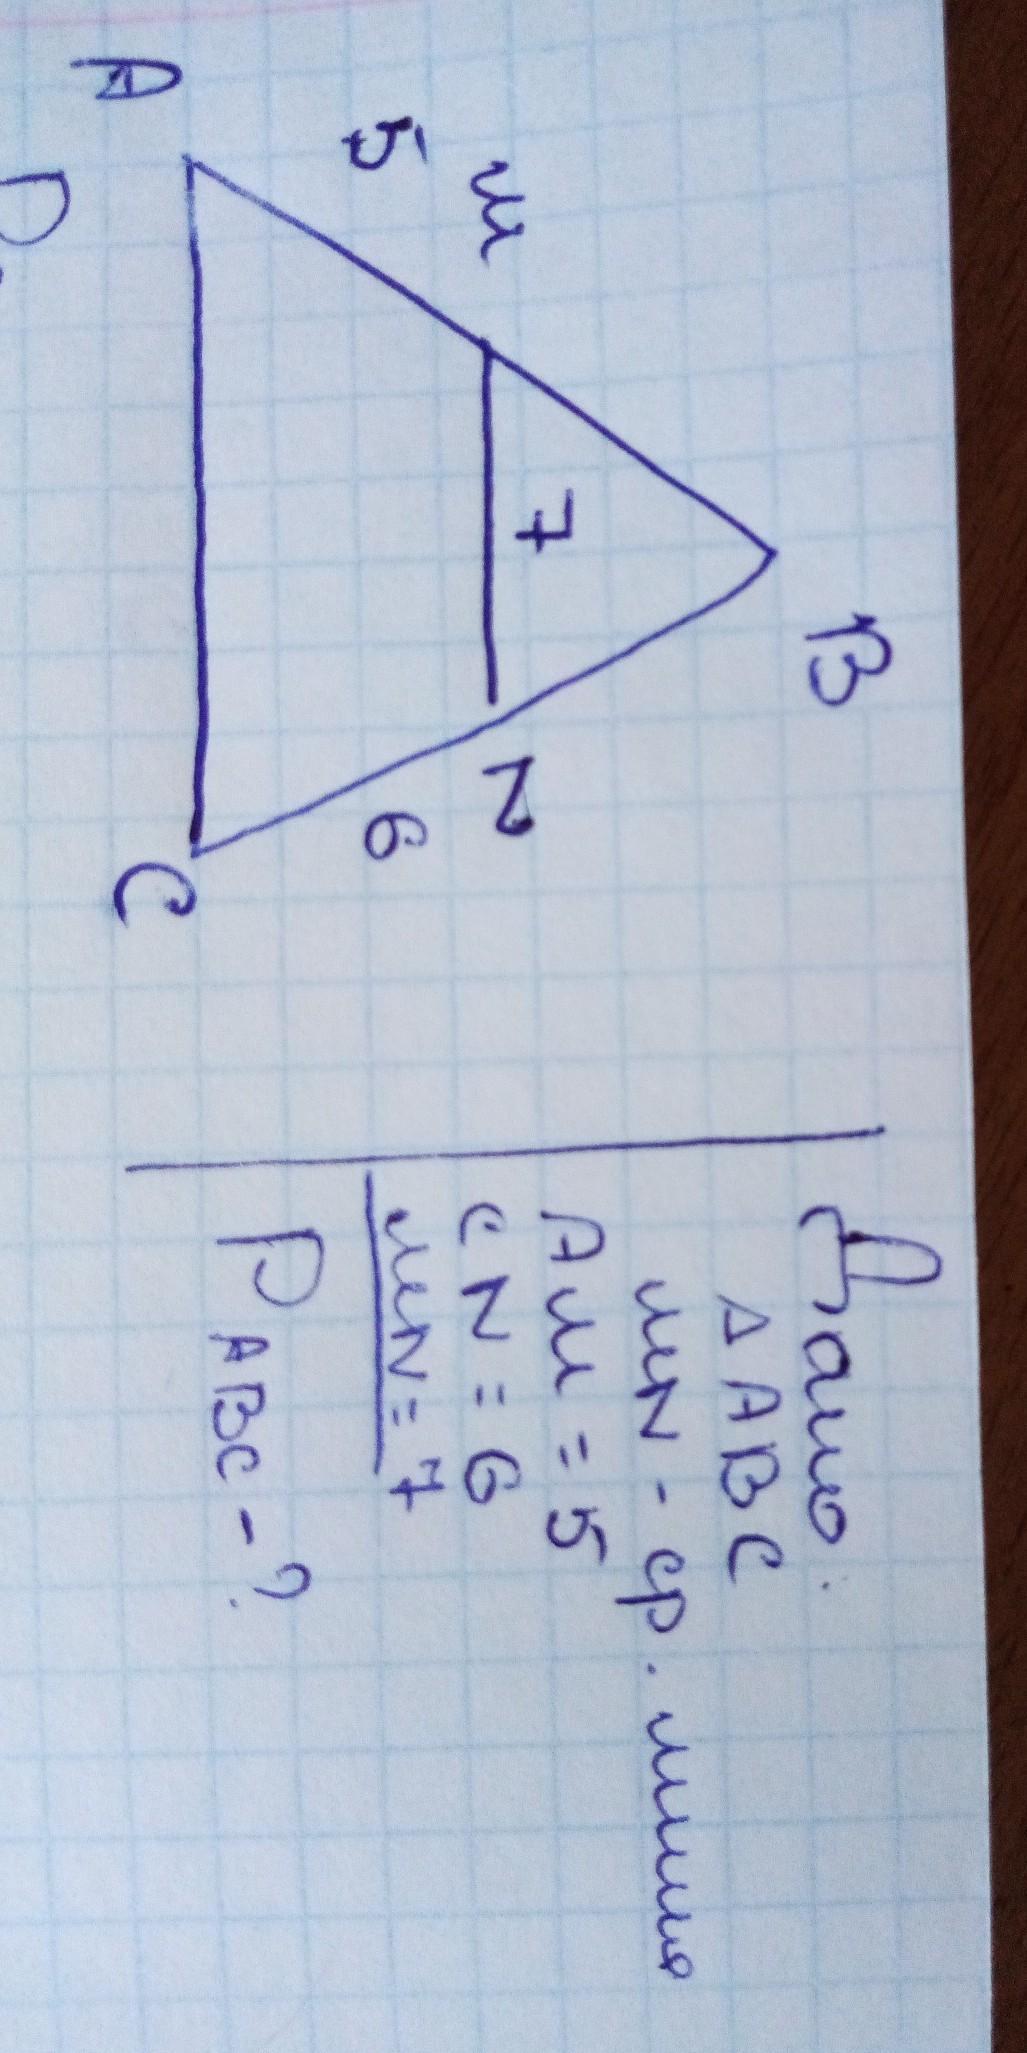 B
M
7
N
5
6
A
C
Дано:
△ ABC
MN - ср. линия
AM = 5
CN = 6
MN = 7
P ABC - ?